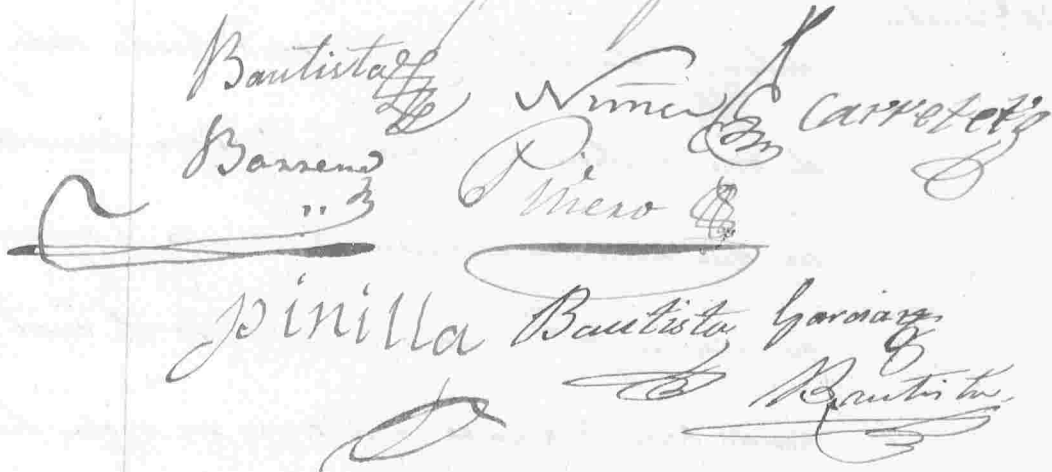 Bautista Nuñez Carretero
Barreno Piñero
pinilla Bautista Garcia
Bautista